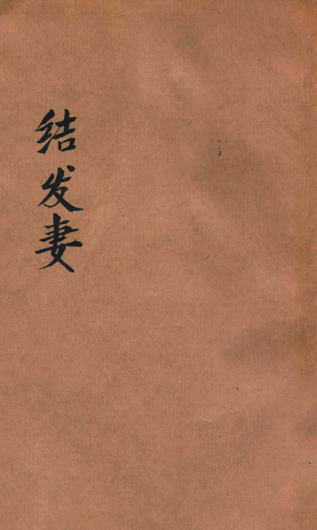 结发妻